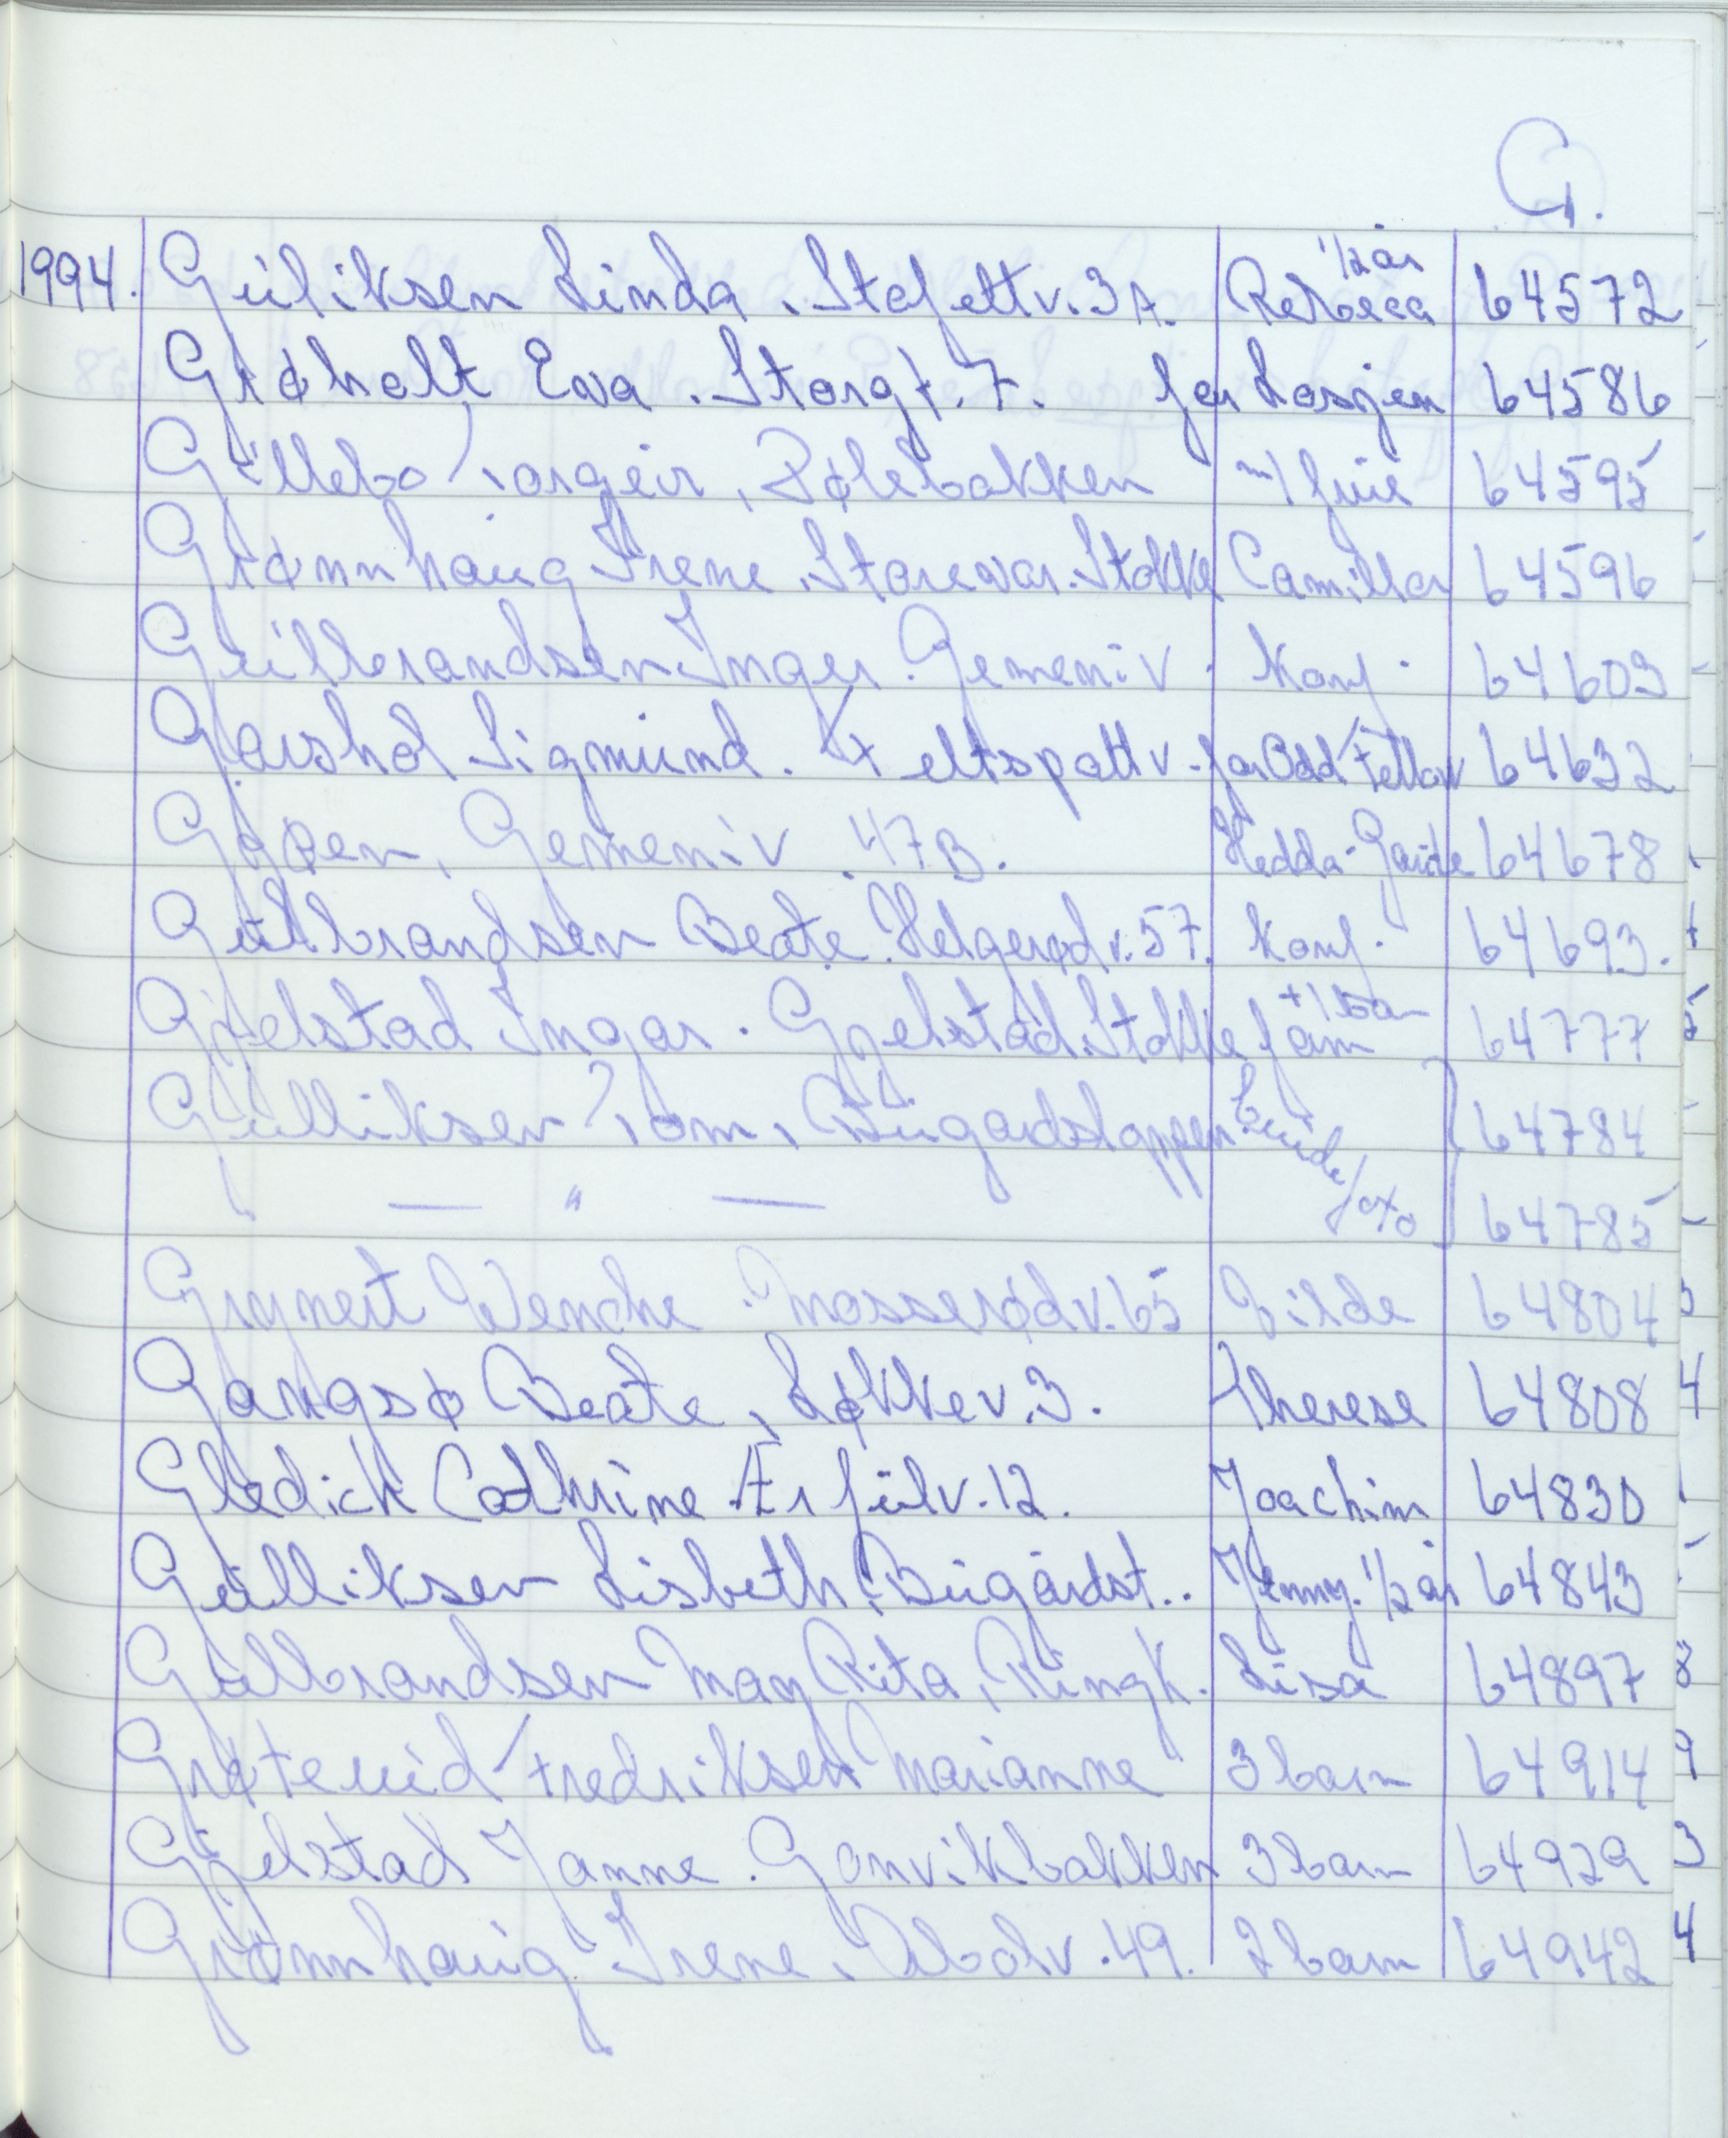 G.
1994. Guliksen Linda. Stafettv. 3A. Rebecca 1/2 år 64572
Grøholt Eva. Storgt. 7. for Losjen 64586
Gillebo Torgeir, Bølebakken m/ frue 64595
Grønnhaug Irene. Storevar. Stokke Camilla 64596
Gulbrandsen Inger. Gemeniv. Konf. 64603
Garshol Sigmund. Feltspattv. for Odd Fellow 64632
Gåsen, Gemeniv. 47B. Hedda-Gaute 64678
Gulbrandsen Beate. Helgerødv. 57. Konf. 64693.
Gjelstad Ingar. Gjelstad. Stokke fam + 1 barn 64777
Gulliksen Tom, Bugårdstoppen Brude/foto 64784
— " — 64785
Grynert Wenche. Mosserødv. 65 Gilde 64804
Gangsø Beate, Løkkev. 3. Therese 64808
Gledick Cathrine Ærfulv. 12. Joachim 64830
Gulliksen Lisbeth, Bugårdst.. Jenny. 1/2 år 64843
Gulbrandsen May Rita, Ringk. Lisa 64897
Grøtevid Fredriksen Marianne 3 barn 64914
Gjelstad Janne. Gonvikbakken 3 barn 64929
Grønnhaug Irene, Abolv. 49. 2 barn 64942